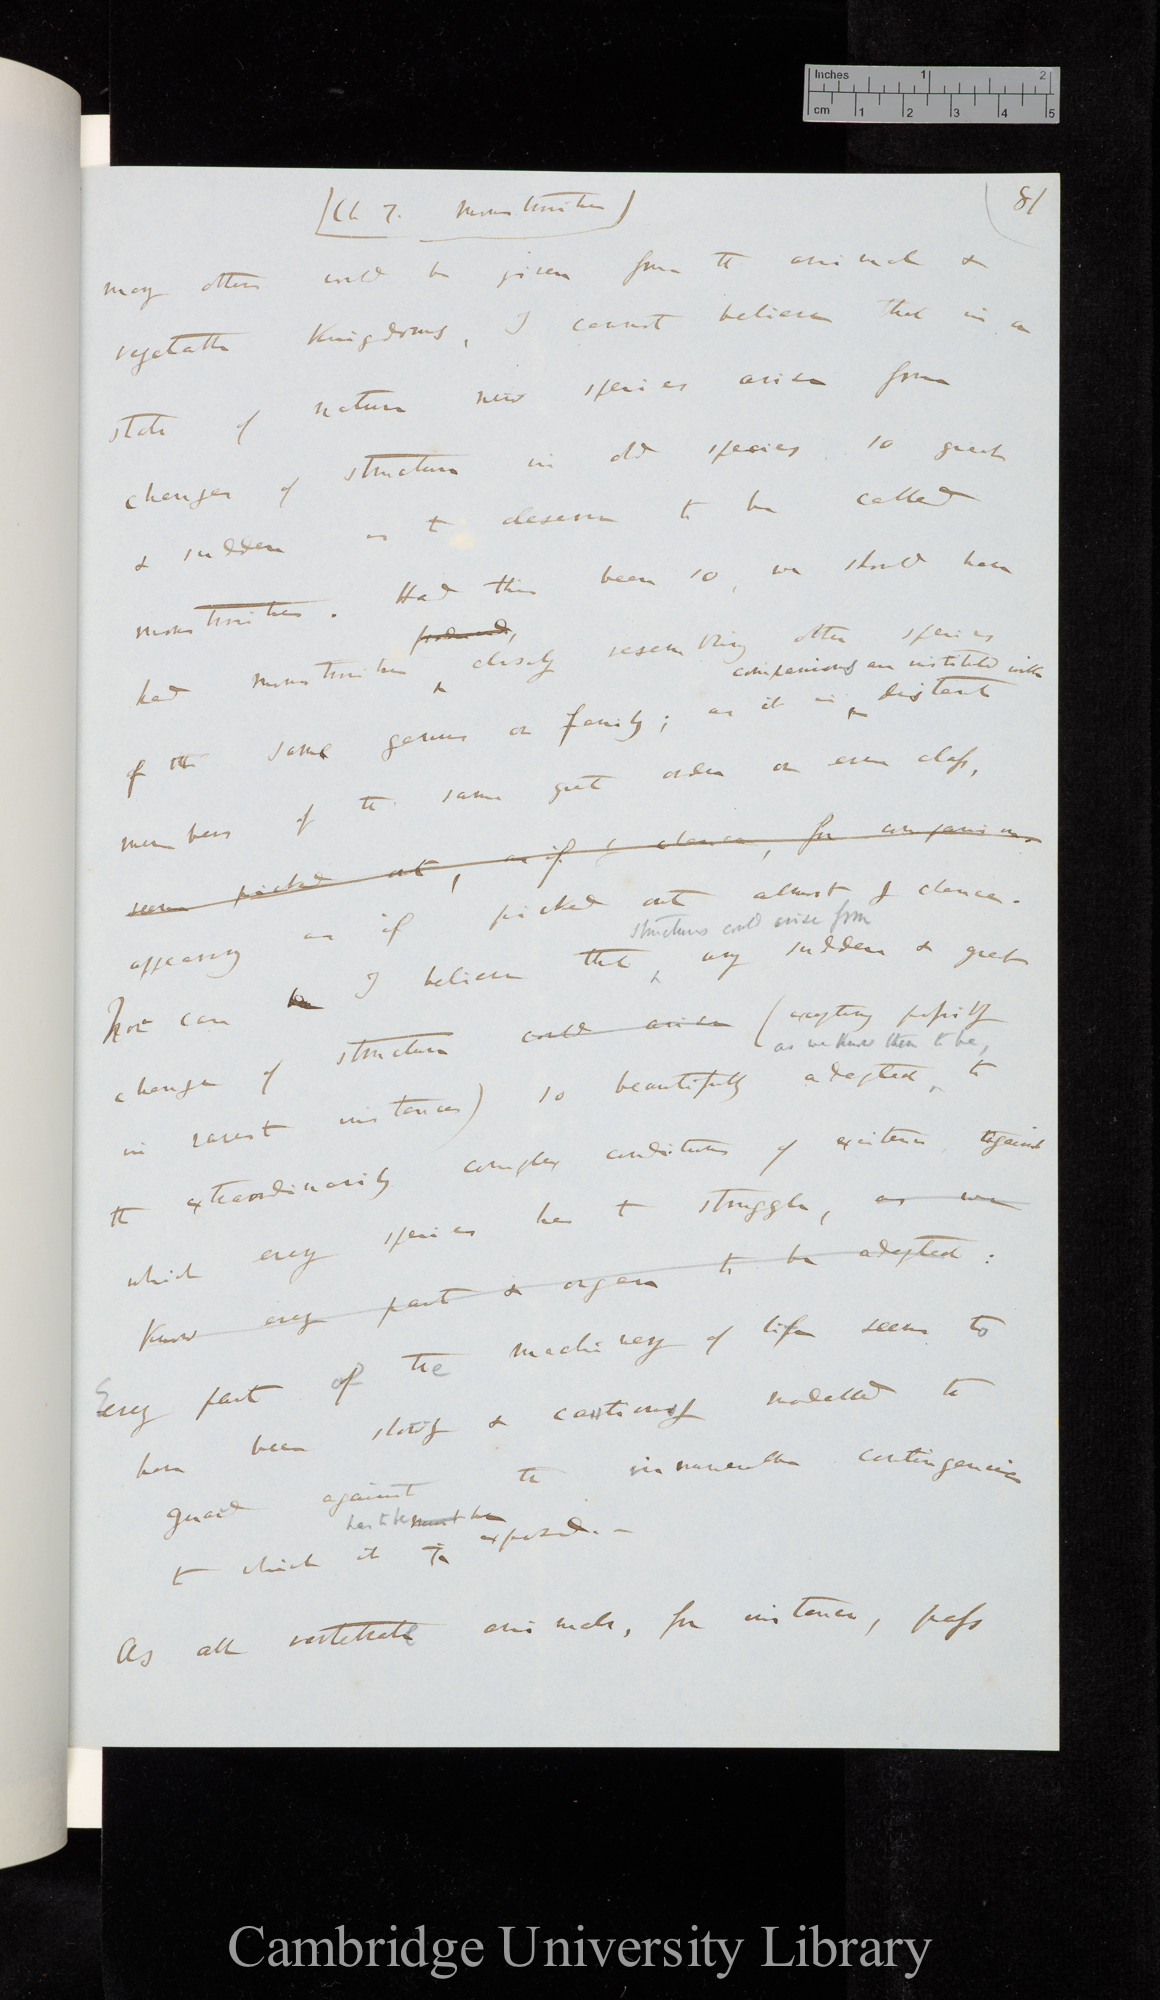 Inches 1 2
cm 1 2 3 4 5
(Ch 7. Monstrosities)
81
many others could be given from the animal &
vegetable Kingdoms, I cannot believe that in a
state of nature new species arise from
changes of structure in old species so great
& sudden as to deserve to be called
monstrosities. Had this been so, we should have
produced,
had monstrosities closely resembling other species
comparisons are instituted with
of the same genus or family; as it is distant
members of the same great order or even class,
seem picked out, as if by chance, for comparison
appearing as if picked out almost by chance.
structures could arise from
Nor can I believe that any sudden & great
change of structure could arise (excepting possibly
as we know them to be,
in rarest instances) so beautifully adapted to
the extraordinarily complex conditions of existence against
which every species has to struggle, as we
know every part & organ to be adapted:
Every part of the machinery of life seems to
have been slowly & cautiously modelled to
guard against the innumerable contingencies
has to be must be
to which it is exposed. —
As all vertebrate animals, for instance, pass
Cambridge University Library